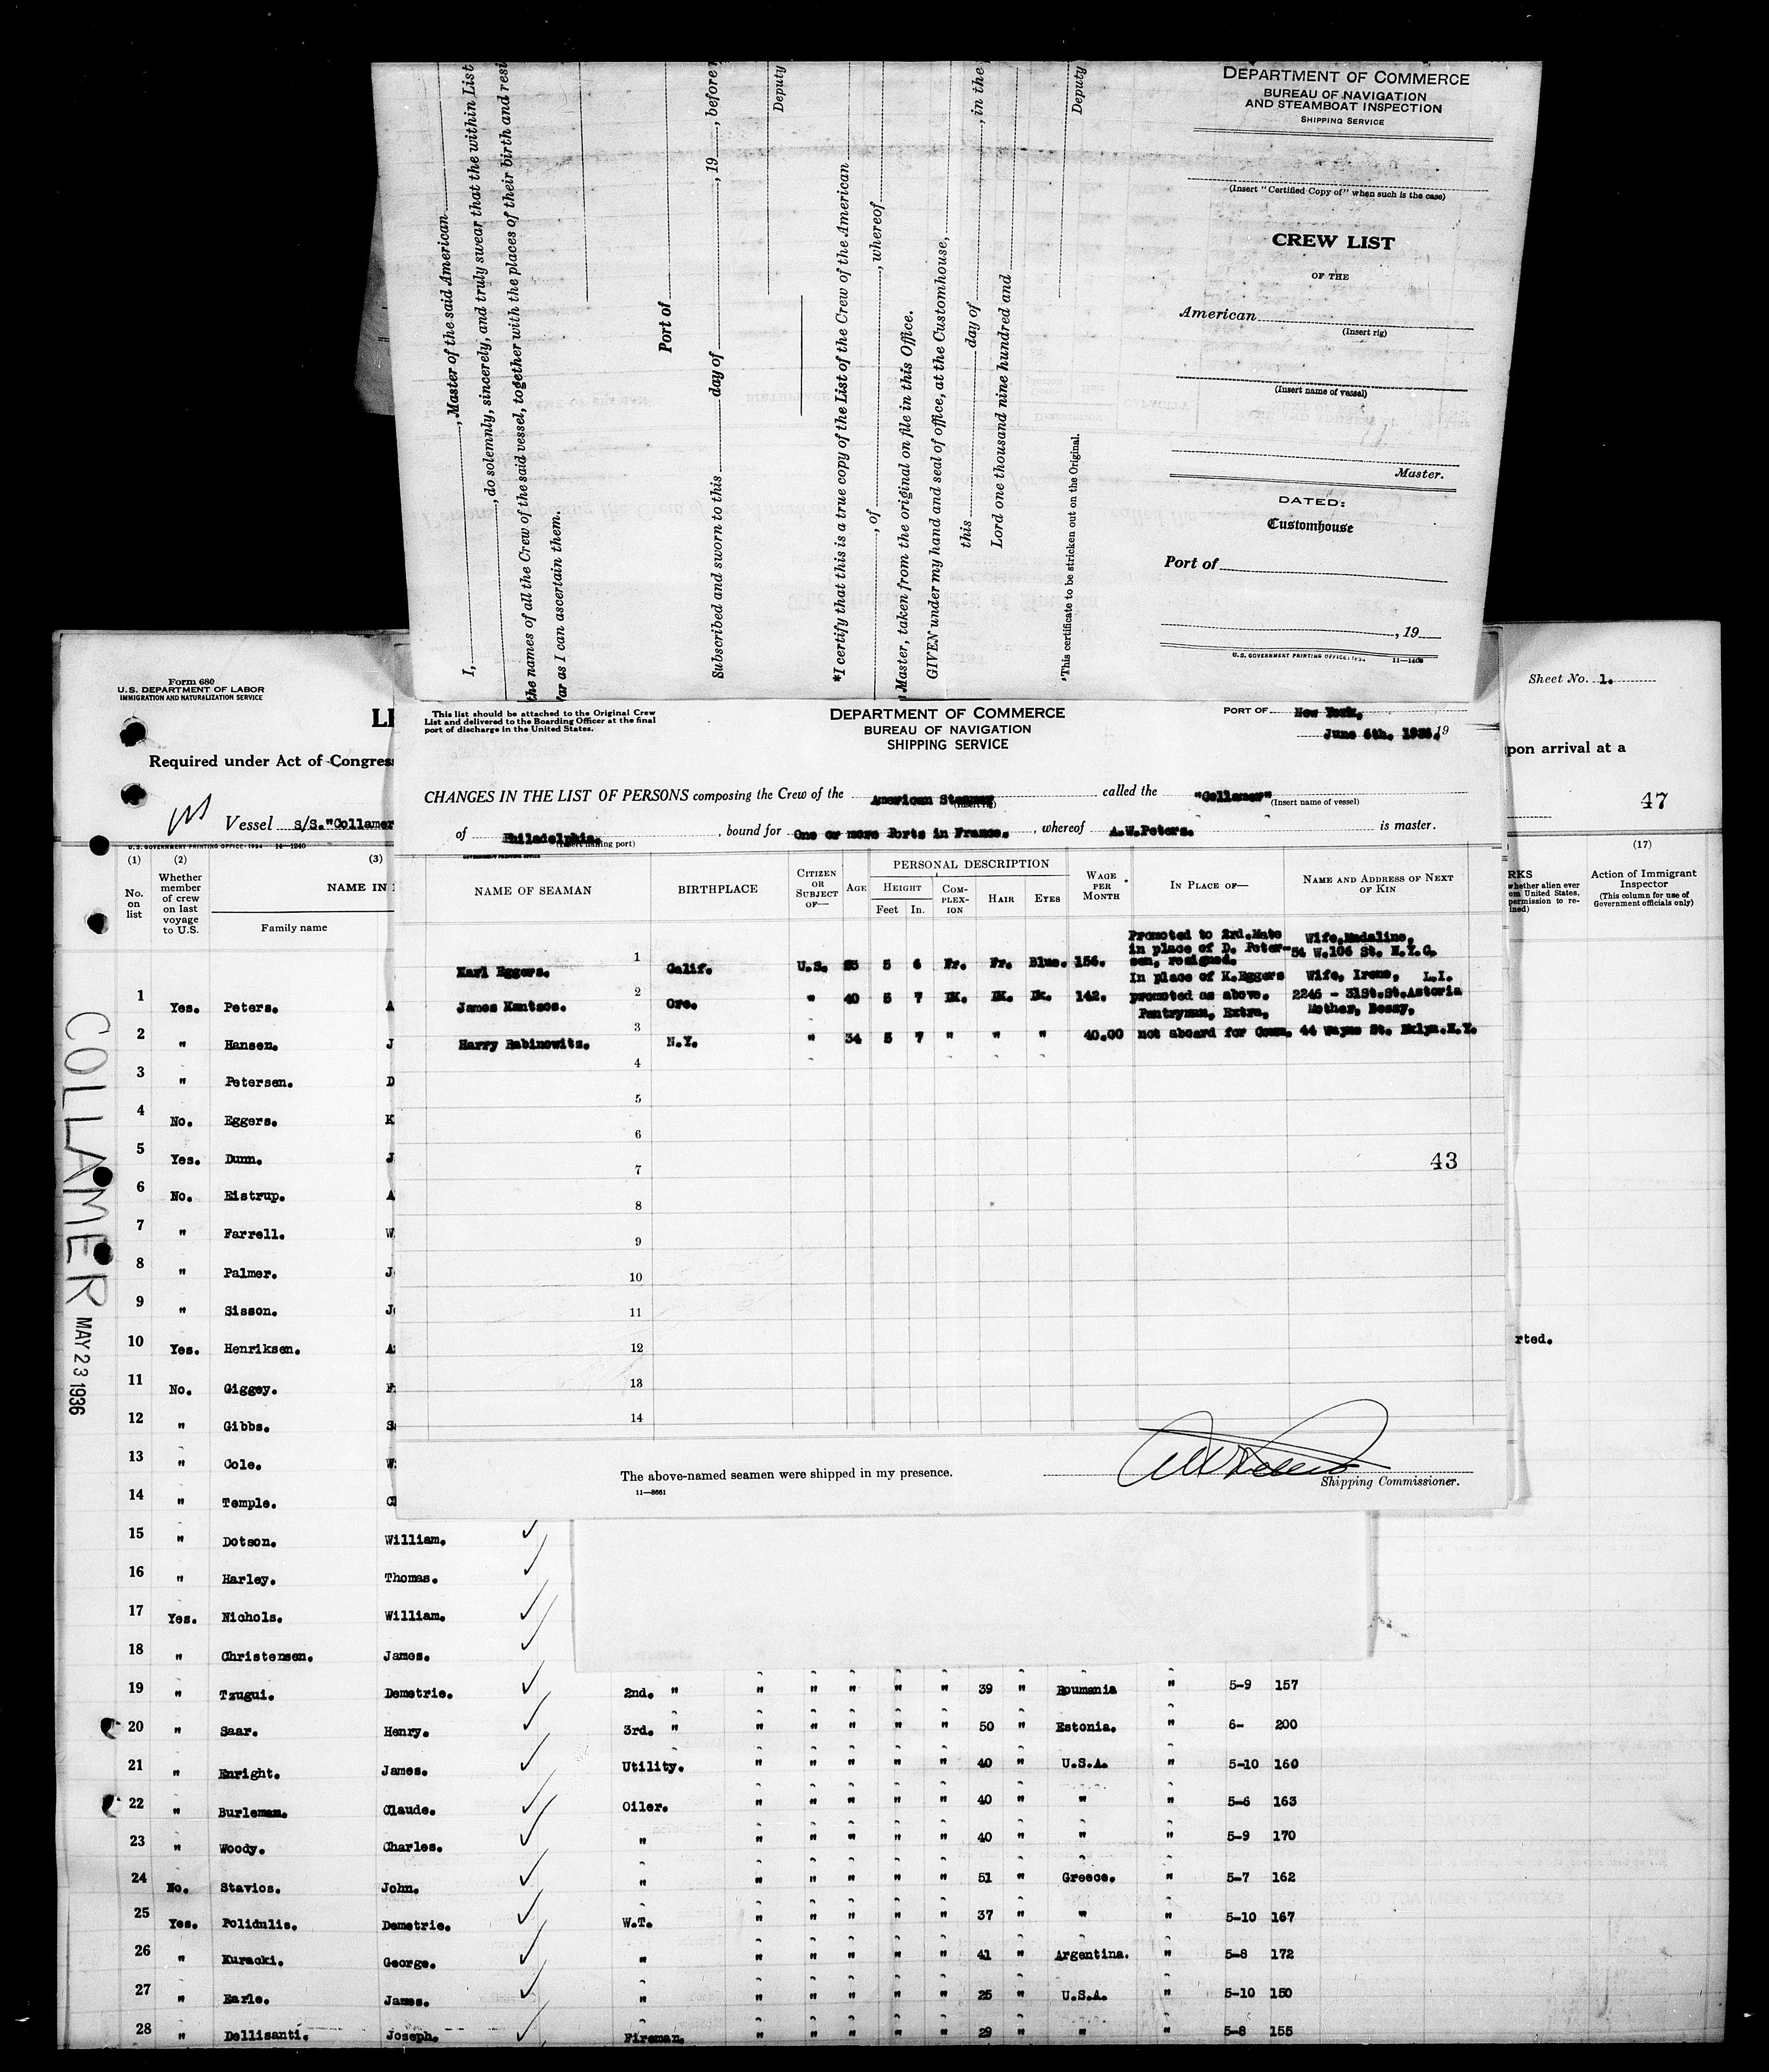 I, , Master of the said American
, do solemnly, sincerely, and truly swear that the within List
the names of all the Crew of the said vessel, together with the places of their birth and resi
far as I can ascertain them.
Port of
Subscribed and sworn to this day of , 19 , before
Deputy
*I certify that this is a true copy of the List of the Crew of the American
, of , whereof
Master, taken from the original on file in this Office.
GIVEN under my hand and seal of office, at the Customhouse,
this day of , in the
Lord one thousand nine hundred and
Deputy
*This certificate to be stricken out on the Original.
DEPARTMENT OF COMMERCE
BUREAU OF NAVIGATION
AND STEAMBOAT INSPECTION
SHIPPING SERVICE
(Insert "Certified Copy of" when such is the case)
CREW LIST
OF THE
American
(Insert rig)
(Insert name of vessel)
Master.
DATED:
Customhouse
Port of
, 19
U.S. GOVERNMENT PRINTING OFFICE: 1934 11-1408
Form 680
U.S. DEPARTMENT OF LABOR
IMMIGRATION AND NATURALIZATION SERVICE
LI
Required under Act of Congres
Vessel S/S."Collamer
U.S. GOVERNMENT PRINTING OFFICE: 1934 14-1240
Sheet No. 1.
pon arrival at a
47
This list should be attached to the Original Crew
List and delivered to the Boarding Officer at the final
port of discharge in the United States.
DEPARTMENT OF COMMERCE
BUREAU OF NAVIGATION
SHIPPING SERVICE
PORT OF New York,
June 6th. 1936. 19
CHANGES IN THE LIST OF PERSONS composing the Crew of the American Steamer called the "Collamer"
(Insert rig) (Insert name of vessel)
of Philadelphia. , bound for One or more Ports in France. , whereof A.W.Peters. is master.
(Insert hailing port)
GOVERNMENT PRINTING OFFICE
NAME OF SEAMAN BIRTHPLACE CITIZEN OR SUBJECT OF— AGE PERSONAL DESCRIPTION HEIGHT Feet In. COMPLEXION HAIR EYES WAGE PER MONTH IN PLACE OF— NAME AND ADDRESS OF NEXT OF KIN
1 Karl Eggers. Calif. U.S. 5 6 Fr. Fr. Blue. 156. Promoted to 2rd.Mate in place of D. Petersen, resigned. Wife,Madaline, 54 W.106 St. N.Y.C.
2 James Kantsos. Ore. " 40 5 7 DK. DK. Dk. 142. In place of K.Eggers promoted as above. Wife, Irene, L.I. 2246 - 31St.St.Astoria
3 Harry Rabinowitz. N.Y. " 34 5 7 " " " 40.00 Pantryman, Extra, not aboard for Mother, Bessy, 44 Wayne St. Bklyn.N.Y.
4
5
6
7
43
8
9
10
11
12
13
14
The above-named seamen were shipped in my presence.
11-8661
Shipping Commissioner.
(1) (2) (3)
No. on list
Whether member of crew on last voyage to U.S.
NAME IN
Family name
RKS
whether alien ever
om United States,
permission to re-
ined)
(17)
Action of Immigrant
Inspector
(This column for use of
Government officials only)
COLLAMER
MAY 23 1936
1 Yes. Peters. A
2 " Hansen. J
3 " Petersen. D
4 No. Eggers. K
5 Yes. Dunn. J
6 No. Eistrup. A
7 " Farrell. W
8 " Palmer. J
9 " Sisson. J
10 Yes. Henriksen. A rted.
11 No. Giggey. F
12 " Gibbs. S
13 " Cole. W
14 " Temple. C
15 " Dotson. William.
16 " Harley. Thomas.
17 Yes. Nichols. William.
18 " Christensen. James.
19 " Tzugui. Demetrie. 2nd. " " " " " " 39 " Roumania " 5-9 157
20 " Saar. Henry. 3rd. " " " " " " 50 " Estonia. " 6- 200
21 " Enright. James. Utility. " " " " " 40 " U.S.A. " 5-10 160
22 " Burleman. Claude. Oiler. " " " " " 40 " " " 5-6 163
23 " Woody. Charles. " " " " " " 40 " " " 5-9 170
24 No. Stavios. John. " " " " " " 51 " Greece. " 5-7 162
25 Yes. Polidulis. Demetrie. W.T. " " " " " 37 " " " 5-10 167
26 " Kuracki. George. " " " " " " 41 " Argentina. " 5-8 172
27 " Earle. James. " " " " " " 25 " U.S.A. " 5-10 150
28 " Dellisanti. Joseph. Fireman. " " " " " 29 " " " 5-8 155